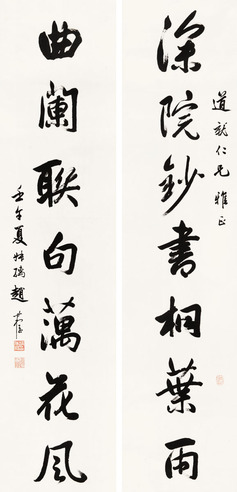 深院鈔書桐葉雨
道龍仁兄雅正
曲闌聯句藕花風
壬午夏 趙